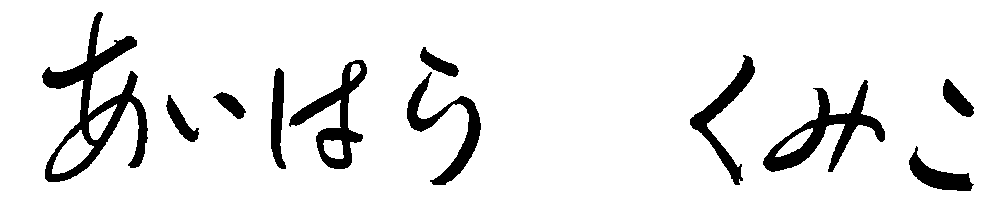 あいはら くみこ